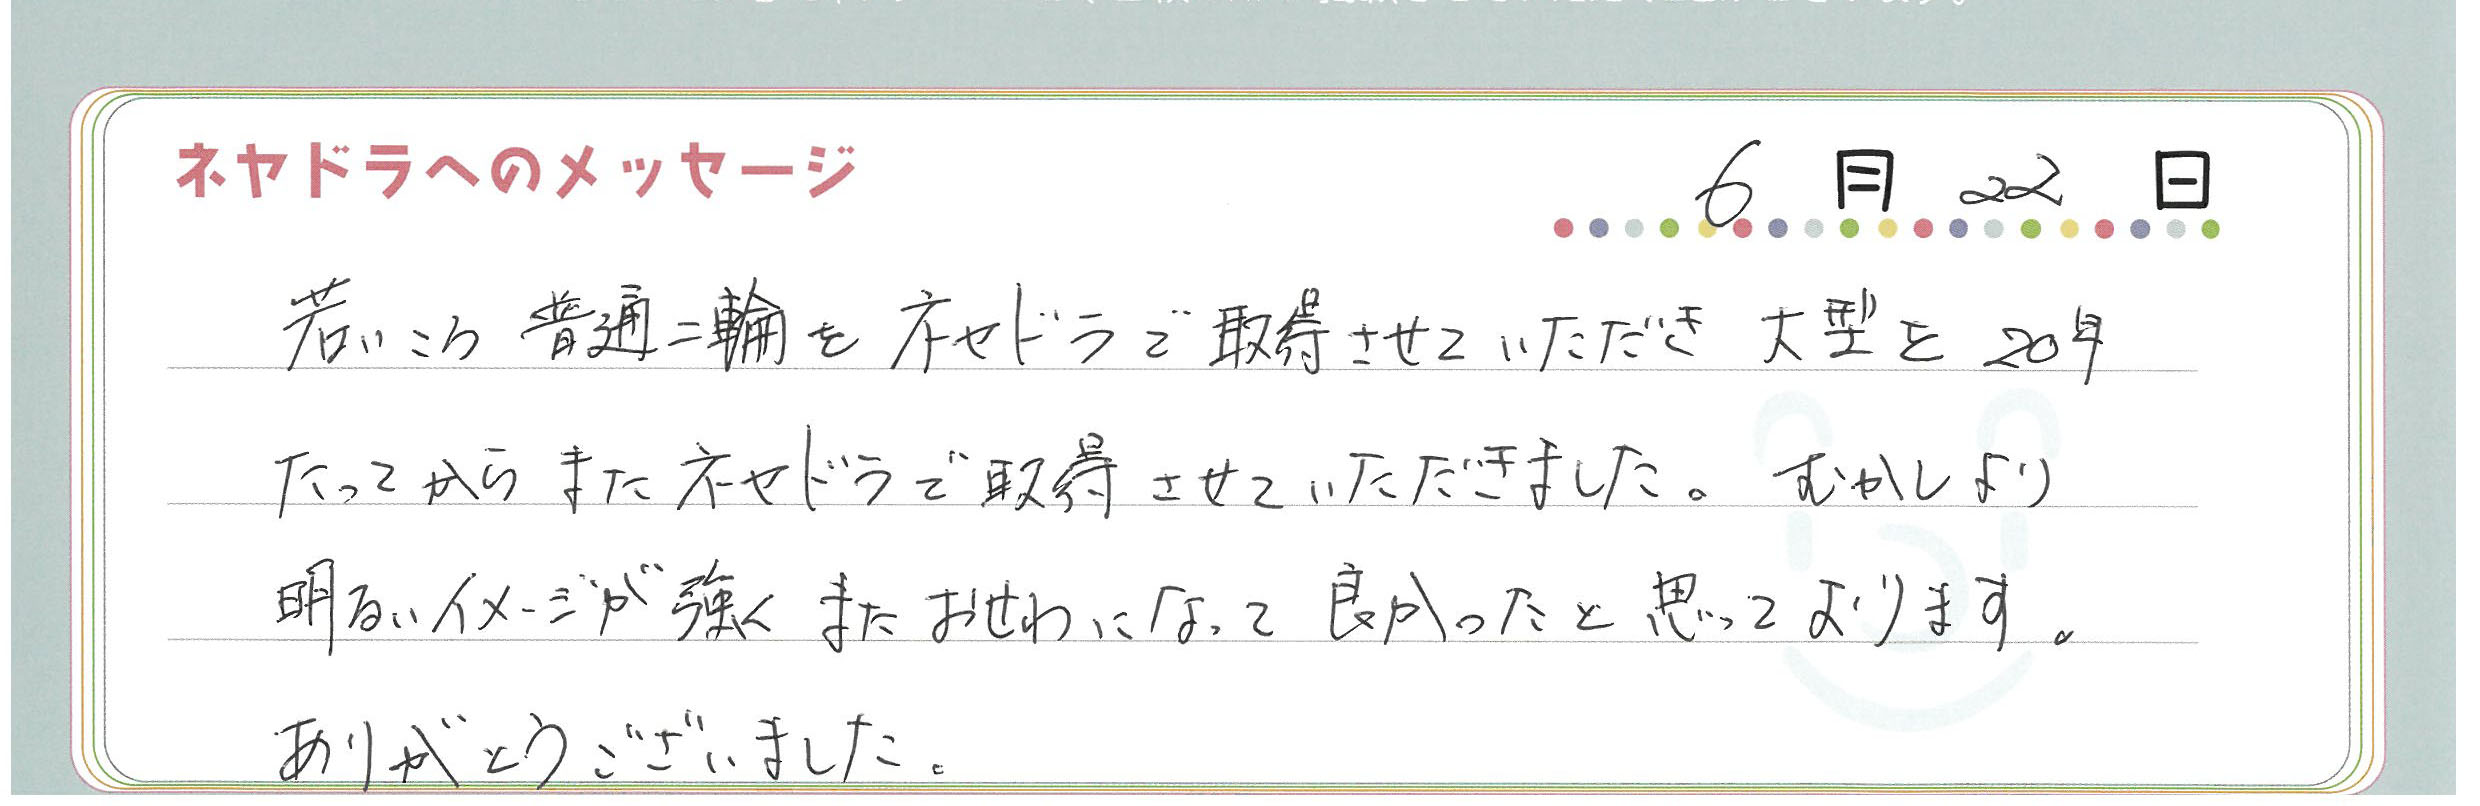 ネヤドラへのメッセージ
6月22日
若いころ 普通二輪をネヤドラで取得させていただき 大型を20年
たってから またネヤドラで取得させていただきました。 むかしより
明るいイメージが強く また おせわになって 良かったと思っております。
ありがとうございました。